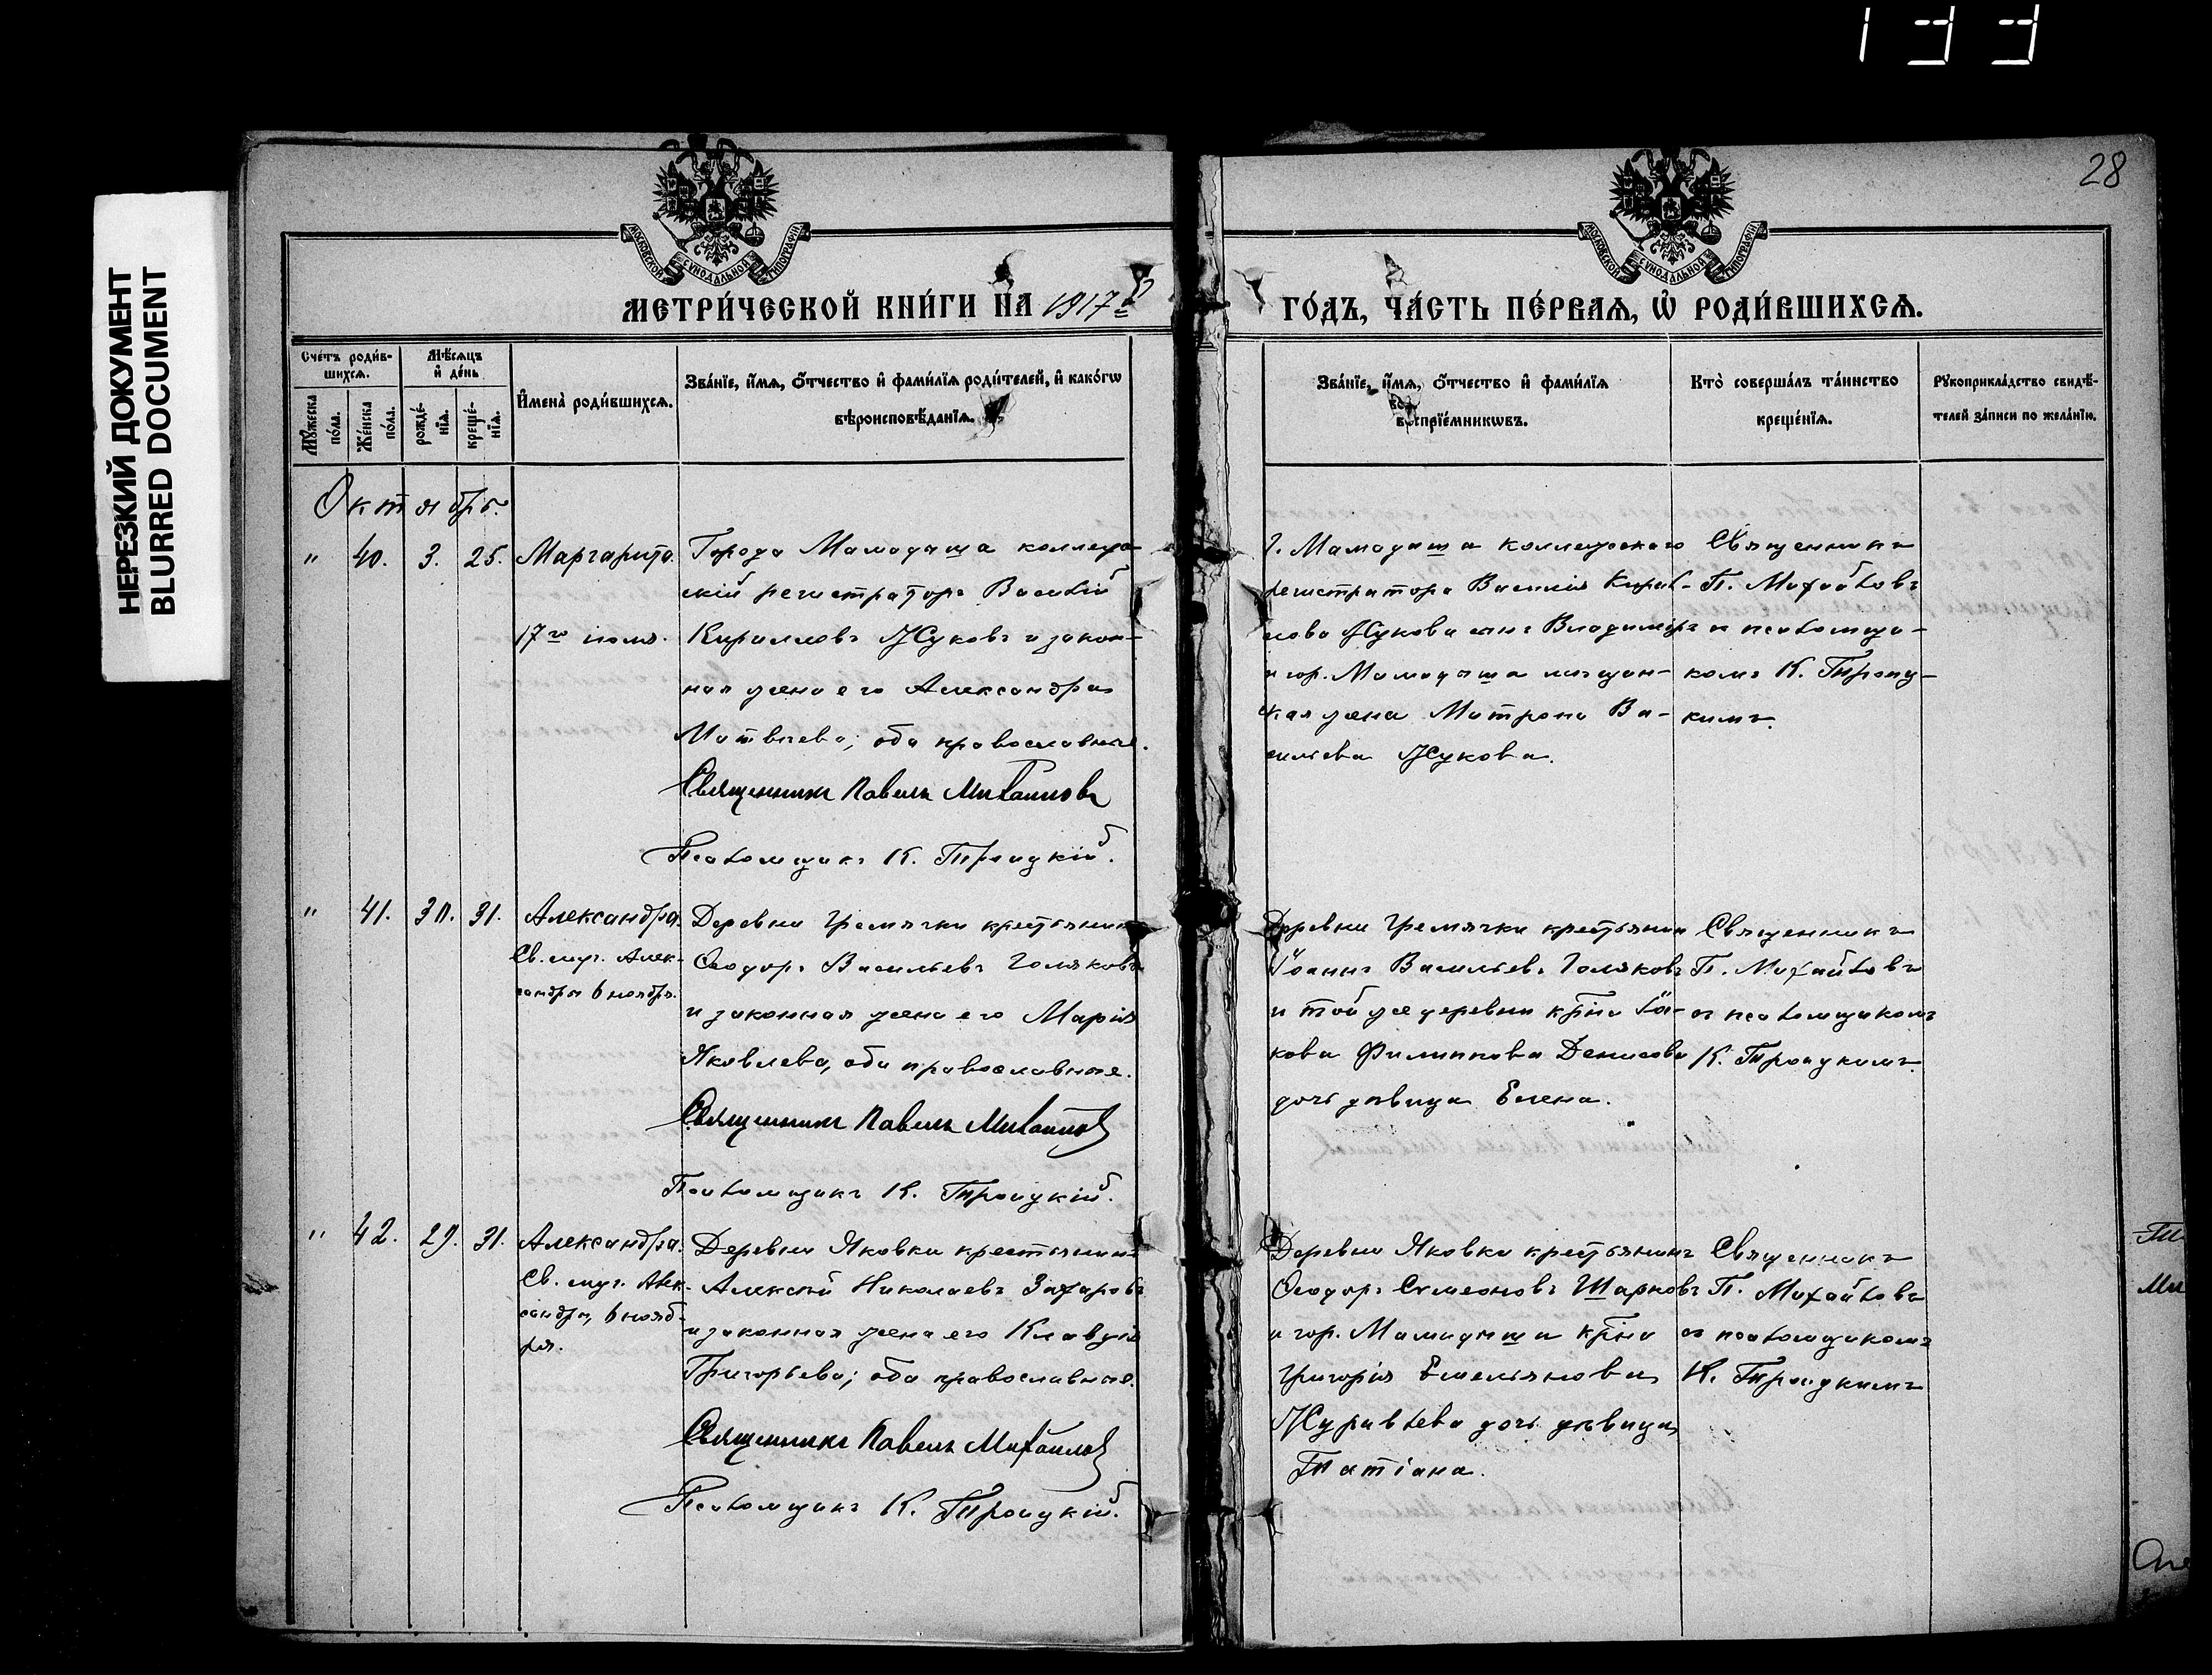 133
28
НЕРЕЗКИЙ ДОКУМЕНТ
BLURRED DOCUMENT
МОСКОВСКОЙ СУНОДАЛЬНОЙ ТИПОГРАФІИ
МОСКОВСКОЙ СУНОДАЛЬНОЙ ТИПОГРАФІИ
МЕТРИ́ЧЕСКОЙ КНИ́ГИ НА 1917й
ГО́ДЪ, ЧА́СТЬ ПЕ́РВАѦ, Ѡ҆ РОДИ́ВШИХСѦ.
Сче́тъ роди́в-
шихсѧ.
Мѣ́сѧцъ
и҆ де́нь
Мꙋ́жеска
по́ла.
Же́нска
по́ла.
рожде́-
нїѧ.
креще́-
нїѧ.
И҆мена̀ роди́вшихсѧ.
Зва́нїе, и҆́мѧ, ѻ҆́тчество и҆ фами́лїѧ роди́телей, и҆ како́гѡ
вѣроисповѣ́данїѧ.
Зва́нїе, и҆́мѧ, ѻ҆́тчество и҆ фами́лїѧ
воспрїе́мникѡвъ.
Кто̀ соверша́лъ та́инство
креще́нїѧ.
Рꙋкоприкла́дство свидѣ́-
телей за́писи по жела́нїю.
Октябрь.
" 40. 3. 25. Маргарита.
17го іюля.
Города Мамадыша коллеж-
скій регистраторъ Василій
Кирилловъ Жуковъ и закон-
ная жена его Александра
Матвѣева; оба православные.
Священникъ Павелъ Михайловъ
Псаломщикъ К. Троицкій.
г. Мамадыша коллежскаго
регистратора Василія Кирил-
лова Жукова сынъ Владиміръ
и гор. Мамадыша мѣщан-
ская жена Матрона Ва-
сильева Жукова.
Священникъ
П. Михайловъ
съ псаломщи-
комъ К. Троиц-
кимъ.
" 41. 30. 31. Александра.
Св. муч. Алек-
сандры 6 ноября.
Деревни Гремячки крестьянинъ
Ѳеодоръ Васильевъ Голяковъ
и законная жена его Марія
Яковлева, оба православные.
Священникъ Павелъ Михайловъ
Псаломщикъ К. Троицкій.
Деревни Гремячки крестьянинъ
Іоаннъ Васильевъ Голяковъ
и той же деревни кр-на Іа-
кова Филиппова Денисова
дочь дѣвица Елена.
Священникъ
П. Михайловъ
съ псаломщикомъ
К. Троицкимъ.
" 42. 29. 31. Александра.
Св. муч. Алек-
сандры, 6 нояб-
ря.
Деревни Яковки крестьянинъ
Алексѣй Николаевъ Захаровъ
и законная жена его Клавдія
Григорьева; оба православные.
Священникъ Павелъ Михайловъ
Псаломщикъ К. Троицкій.
Деревни Яковки крестьянинъ
Ѳеодоръ Симеоновъ Шарковъ
и гор. Мамадыша кр-на
Григорія Емельянова
Журавлева дочь дѣвица
Татіана.
Священникъ
П. Михайловъ
съ псаломщикомъ
К. Троицкимъ